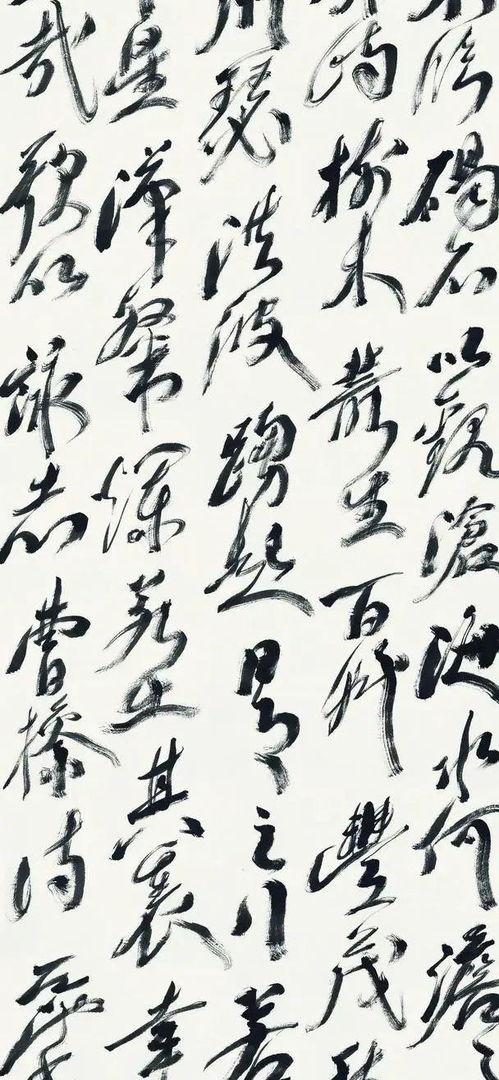 臨碣石以觀滄海水何澹
峙樹木叢生百草豐茂秋
瑟洪波踴起日月之行若
星漢粲爛若出其裏幸
哉歌以詠志曹操詩